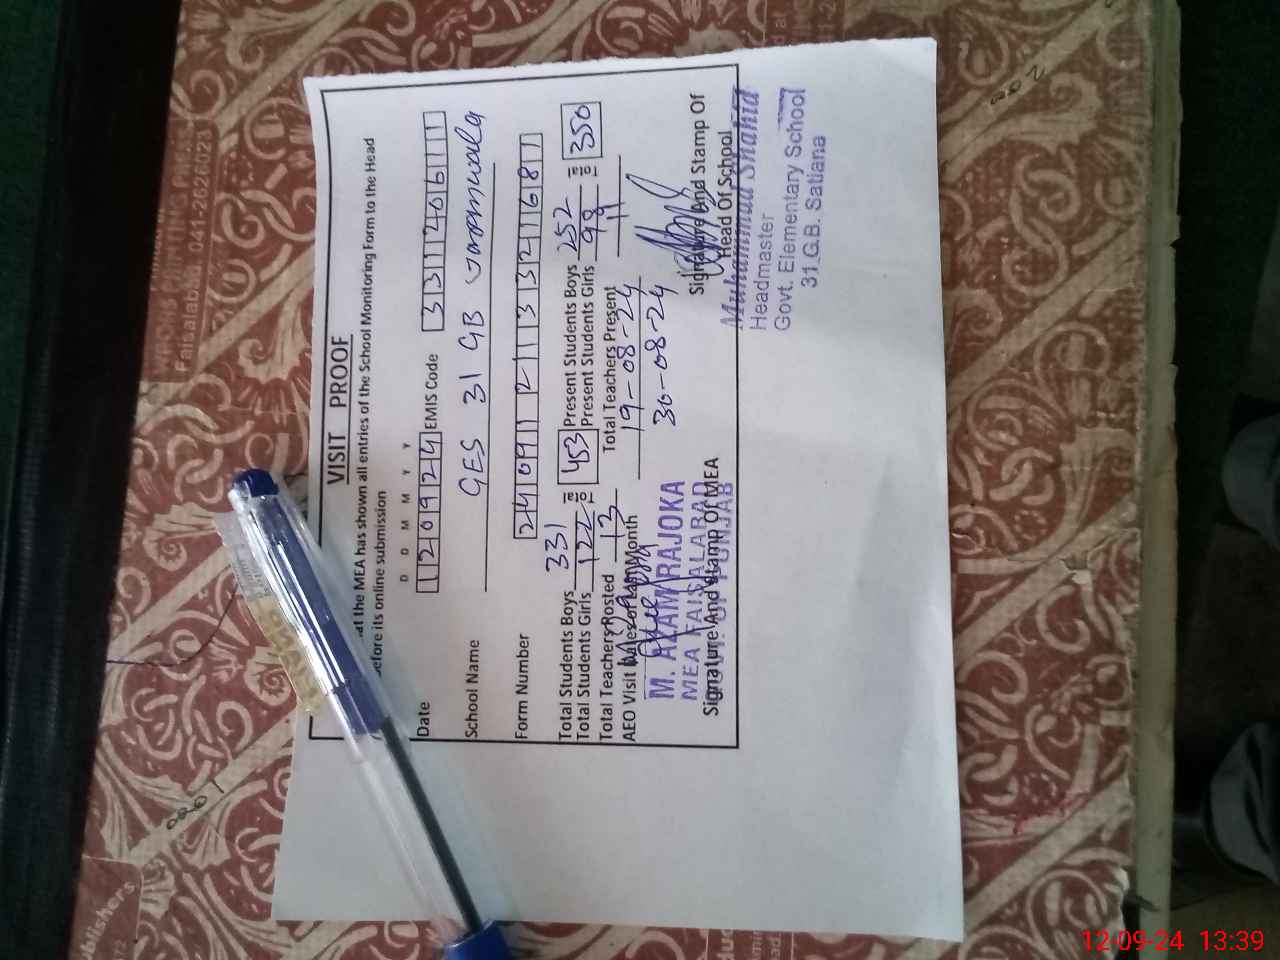 VISIT PROOF
at the MEA has shown all entries of the School Monitoring Form to the Head
before its online submission
D D M M Y Y
Date 120924 EMIS Code 33120611
School Name GES 31 GB
Form Number
Total Students Boys 331
Total Students Girls 122
453
Present Students Boys 252
Present Students Girls 98
350
Total Teachers Posted 13 Total Teachers Present 11
AEO Visit Dates of Last Month 19-08-24
30-08-24
M. AKAM RAJOKA
MEA FAISALABAD
Signature And Stamp Of MEA
Signature And Stamp Of
Head Of School
Muhammad Shahid
Headmaster
Govt. Elementary School
31 G.B. Satiana
Faisalabad. 041-2626023
1000
200
12-09-24 13:39